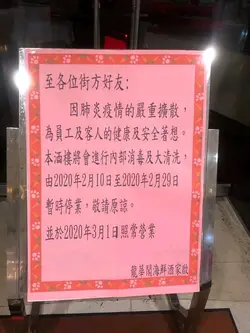 至各位街方好友:
因肺炎疫情的嚴重擴散,
為員工及客人的健康及安全著想。
本酒樓將會進行內部消毒及大清洗,
由2020年2月10日至2020年2月29日
暫時停業,敬請原諒。
並於2020年3月1日照常營業
龍華閣海鮮酒家啟